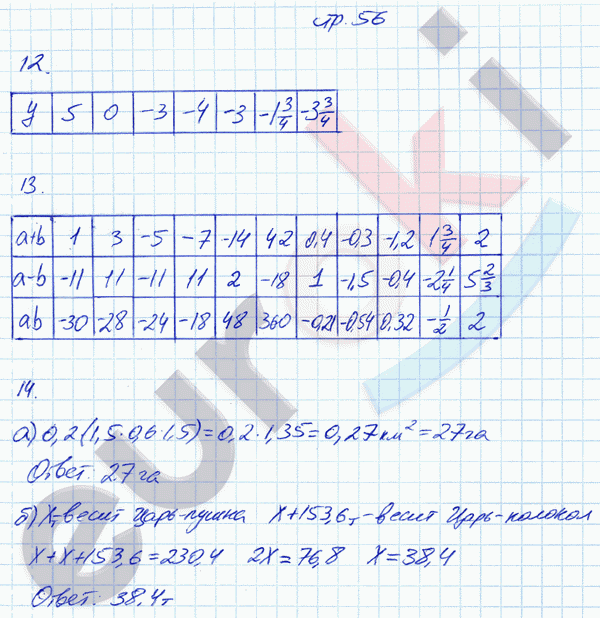 стр. 56
12.
y 5 0 -3 -4 -3 -1 3/4 -3 3/4
13.
a+b 1 3 -5 -7 -14 42 0,4 -0,3 -1,2 1 3/4 2
a-b -11 11 -11 11 2 -18 1 -1,5 -0,4 -2 1/4 5 2/3
ab -30 -28 -24 -18 48 360 -0,21 -0,54 0,32 -1/2 2
14.
а) 0,2(1,5·0,6·1,5)=0,2·1,35=0,27км²=27га
Ответ: 27га
б) Xт-весит Царь-пушка X+153,6т-весит Царь-колокол
X+X+153,6=230,4 2X=76,8 X=38,4
Ответ: 38,4т
euroki